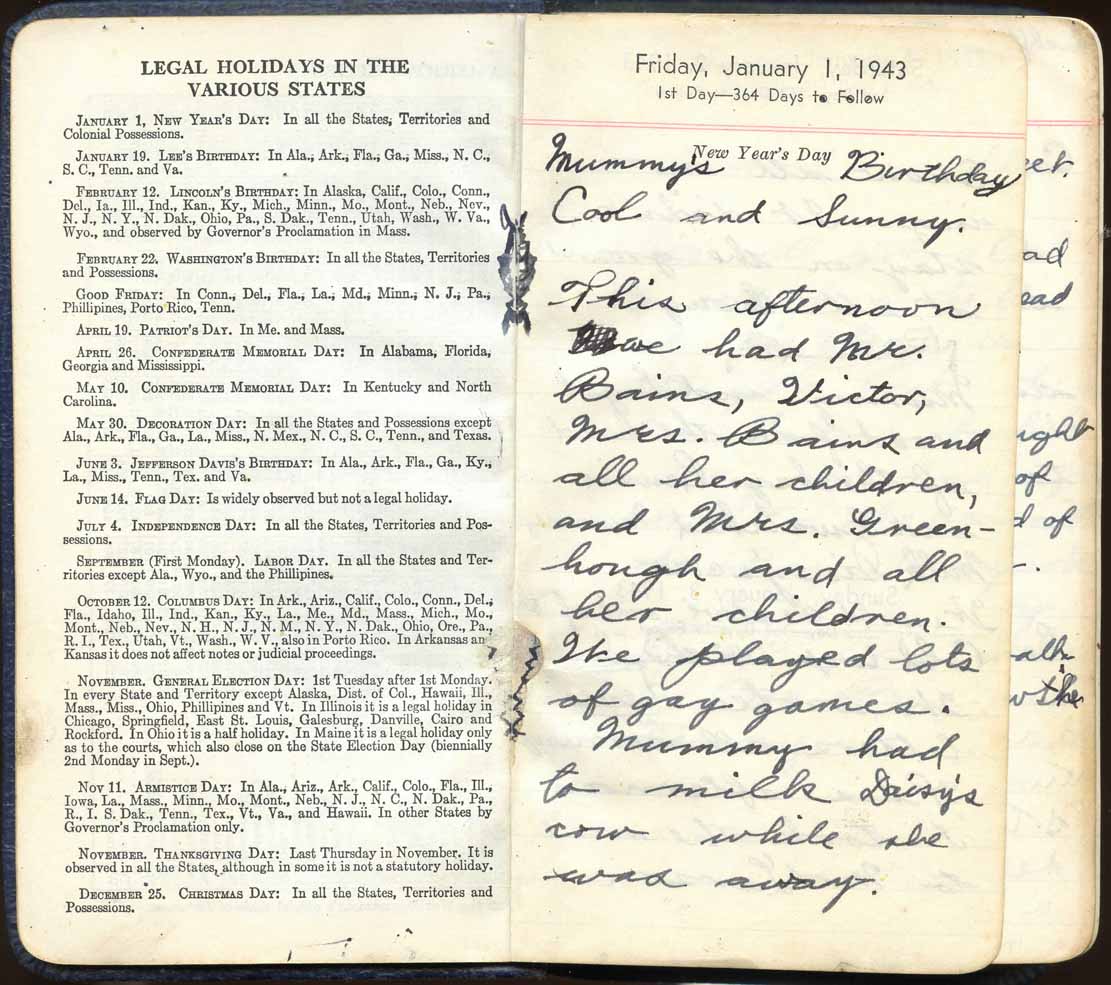 LEGAL HOLIDAYS IN THE
VARIOUS STATES
JANUARY 1, NEW YEAR'S DAY: In all the States, Territories and
Colonial Possessions.
JANUARY 19. LEE'S BIRTHDAY: In Ala., Ark., Fla., Ga., Miss., N. C.,
S. C., Tenn. and Va.
FEBRUARY 12. LINCOLN'S BIRTHDAY: In Alaska, Calif., Colo., Conn.,
Del., Ia., Ill., Ind., Kan., Ky., Mich., Minn., Mo., Mont., Neb., Nev.,
N. J., N. Y., N. Dak., Ohio, Pa., S. Dak., Tenn., Utah, Wash., W. Va.,
Wyo., and observed by Governor's Proclamation in Mass.
FEBRUARY 22. WASHINGTON'S BIRTHDAY: In all the States, Territories
and Possessions.
GOOD FRIDAY: In Conn., Del., Fla., La., Md., Minn., N. J., Pa.,
Phillipines, Porto Rico, Tenn.
APRIL 19. PATRIOT'S DAY. In Me. and Mass.
APRIL 26. CONFEDERATE MEMORIAL DAY: In Alabama, Florida,
Georgia and Mississippi.
MAY 10. CONFEDERATE MEMORIAL DAY: In Kentucky and North
Carolina.
MAY 30. DECORATION DAY: In all the States and Possessions except
Ala., Ark., Fla., Ga., La., Miss., N. Mex., N. C., S. C., Tenn., and Texas.
JUNE 3. JEFFERSON DAVIS'S BIRTHDAY: In Ala., Ark., Fla., Ga., Ky.,
La., Miss., Tenn., Tex. and Va.
JUNE 14. FLAG DAY: Is widely observed but not a legal holiday.
JULY 4. INDEPENDENCE DAY: In all the States, Territories and Pos-
sessions.
SEPTEMBER (First Monday). LABOR DAY. In all the States and Ter-
ritories except Ala., Wyo., and the Phillipines.
OCTOBER 12. COLUMBUS DAY: In Ark., Ariz., Calif., Colo., Conn., Del.,
Fla., Idaho, Ill., Ind., Kan., Ky., La., Me., Md., Mass., Mich., Mo.,
Mont., Neb., Nev., N. H., N. J., N. M., N. Y., N. Dak., Ohio, Ore., Pa.,
R. I., Tex., Utah, Vt., Wash., W. V., also in Porto Rico. In Arkansas an
Kansas it does not affect notes or judicial proceedings.
NOVEMBER. GENERAL ELECTION DAY: 1st Tuesday after 1st Monday.
In every State and Territory except Alaska, Dist. of Col., Hawaii, Ill.,
Mass., Miss., Ohio, Phillipines and Vt. In Illinois it is a legal holiday in
Chicago, Springfield, East St. Louis, Galesburg, Danville, Cairo and
Rockford. In Ohio it is a half holiday. In Maine it is a legal holiday only
as to the courts, which also close on the State Election Day (biennially
2nd Monday in Sept.).
NOV 11. ARMISTICE DAY: In Ala., Ariz., Ark., Calif., Colo., Fla., Ill.,
Iowa, La., Mass., Minn., Mo., Mont., Neb., N. J., N. C., N. Dak., Pa.,
R., I. S. Dak., Tenn., Tex., Vt., Va., and Hawaii. In other States by
Governor's Proclamation only.
NOVEMBER. THANKSGIVING DAY: Last Thursday in November. It is
observed in all the States, although in some it is not a statutory holiday.
DECEMBER 25. CHRISTMAS DAY: In all the States, Territories and
Possessions.
Friday, January 1, 1943
1st Day—364 Days to Follow
New Year's Day
Mummy's Birthday
Cool and Sunny.
This afternoon
we had Mr.
Bains, Victor,
Mrs. Bains and
all her children,
and Mrs. Green-
hough and all
her children.
We played lots
of gay games.
Mummy had
to milk Daisy's
cow while she
was away.
of
d of
the